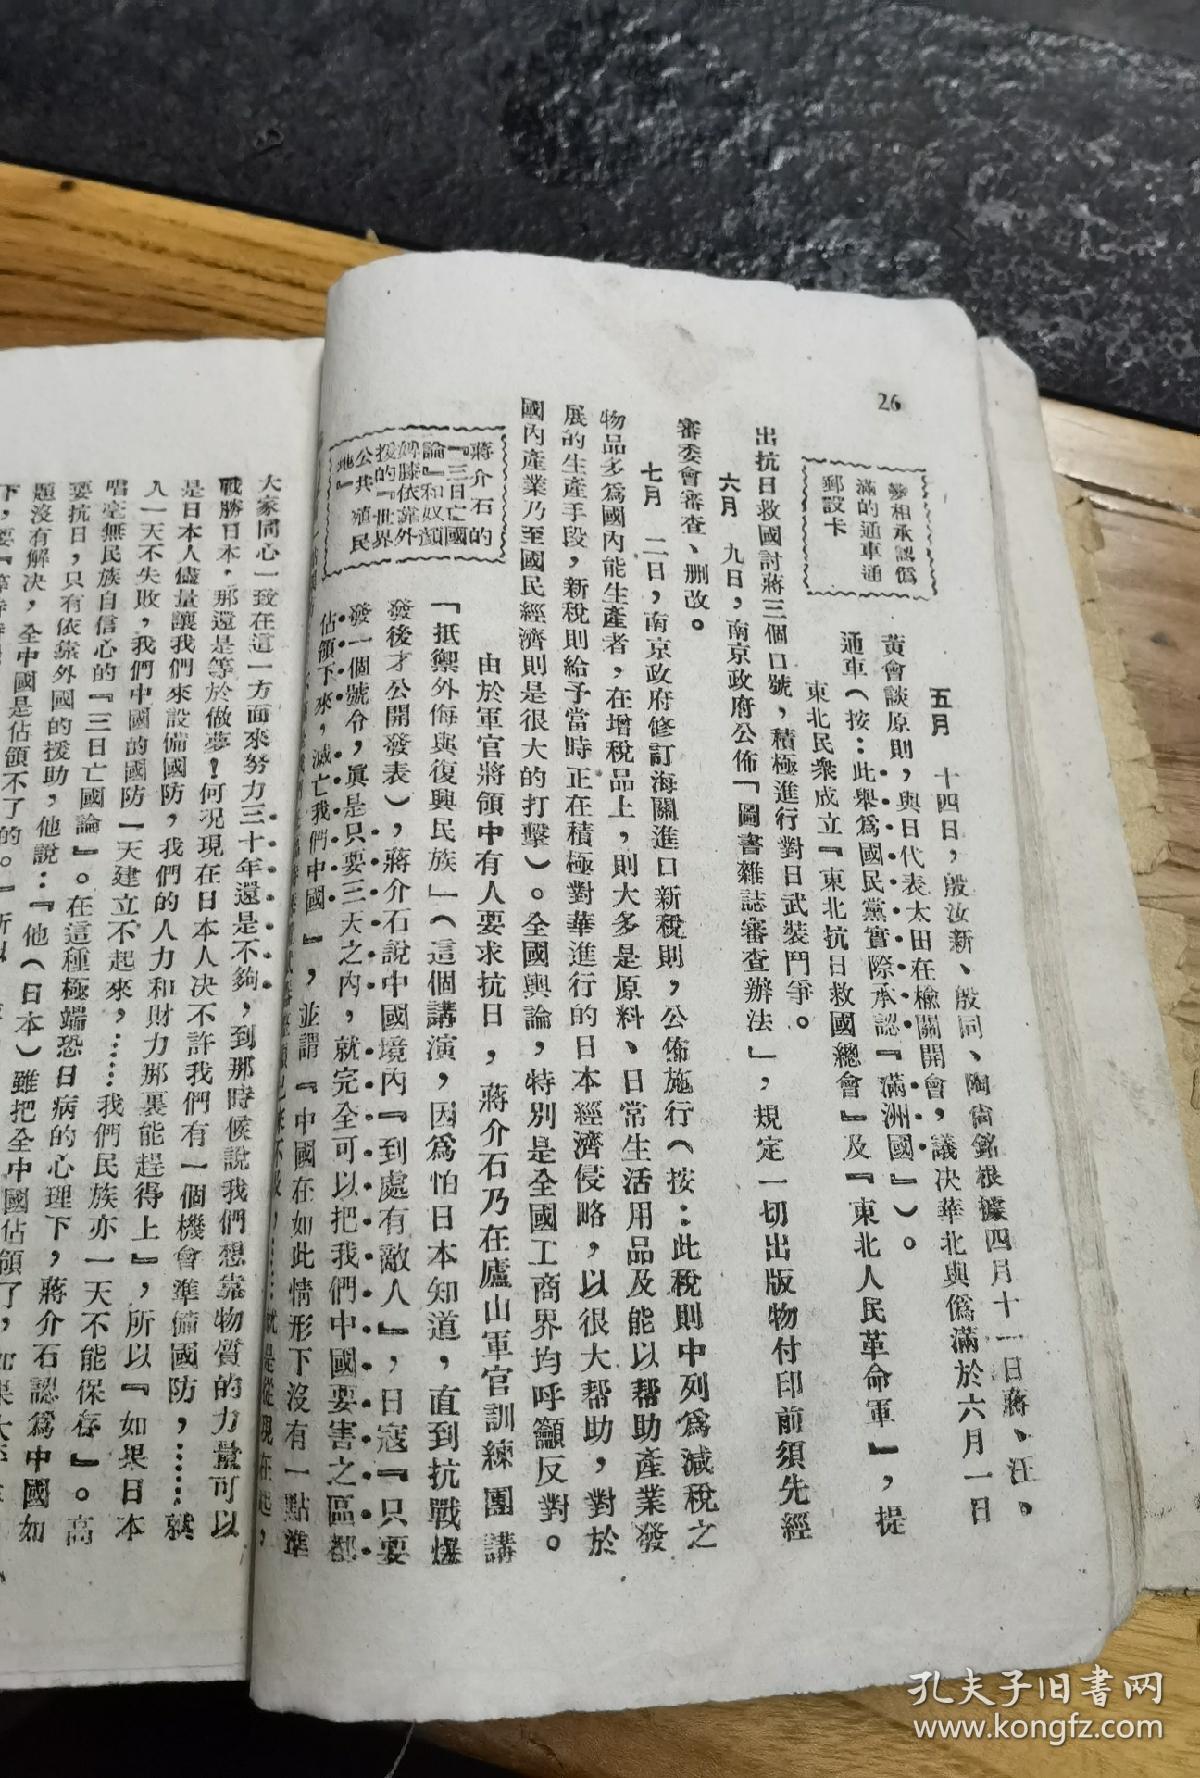 26
變相承認僞
滿的通車通
郵設卡
五月　十四日，殷汝新、殷同、陶尙銘根據四月十一日蔣、汪。
黃會談原則，與日代表太田在楡關開會，議决華北與僞滿於六月一日
通車（按：此舉爲國民黨實際承認『滿洲國』）。
東北民衆成立『東北抗日救國總會』及『東北人民革命軍』，提
出抗日救國討蔣三個口號，積極進行對日武裝鬥爭。
六月　九日，南京政府公佈「圖書雜誌審查辦法」，規定一切出版物付印前須先經
審委會審查、删改。
七月　二日，南京政府修訂海關進口新稅則，公佈施行（按：此稅則中列爲減稅之
物品多爲國內能生產者，在增稅品上，則大多是原料、日常生活用品及能以帮助產業發
展的生產手段，新稅則給予當時正在積極對華進行的日本經濟侵略，以很大帮助，對於
國內產業乃至國民經濟則是很大的打擊）。全國輿論，特別是全國工商界均呼籲反對。
蔣介石的
『三日亡國
論』和奴顏
婢膝依靠外
援的『世界
公共殖民
地』
由於軍官將領中有人要求抗日，蔣介石乃在廬山軍官訓練團講
「抵禦外侮與復興民族」（這個講演，因爲怕日本知道，直到抗戰爆
發後才公開發表），蔣介石說中國境內『到處有敵人』，日寇『只要
發一個號令，眞是只要三天之內，就完全可以把我們中國要害之區都
佔領下來，滅亡我們中國』，並謂『中國在如此情形下沒有一點準
就是從現在起，
大家同心一致在這一方面來努力三十年還是不夠，到那時候說我們想靠物質的力量可以
戰勝日本，那還是等於做夢！何况現在日本人决不許我們有一個機會準備國防，……就
是日本人儘量讓我們來設備國防，我們的人力和財力那裏能趕得上』，所以『如果日本
人一天不失敗，我們中國的國防一天建立不起來，……我們民族亦一天不能保存』。高
唱毫無民族自信心的『三日亡國論』。在這種極端恐日病的心理下，蔣介石認爲中國如
要抗日，只有依靠外國的援助，他說：『他（日本）雖把全中國佔領了，如果大
題沒有解决，全中國是佔領不了的。』所以
孔夫子旧书网
www.kongfz.com